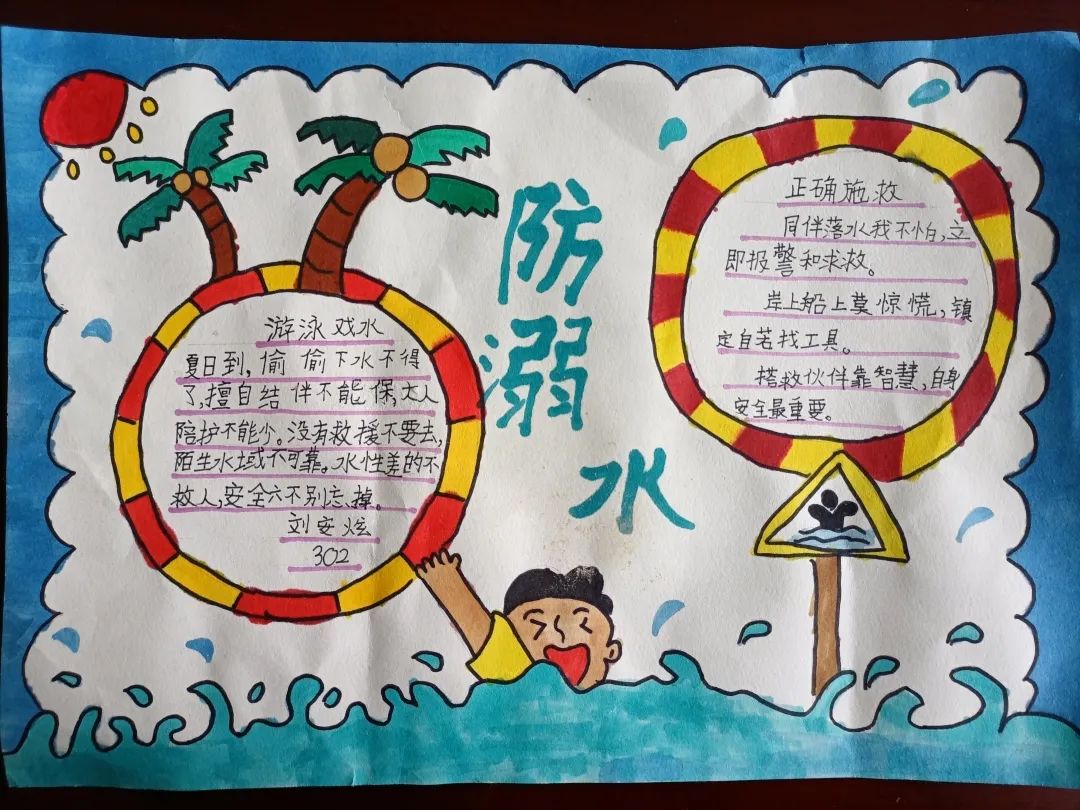 防溺水
游泳戏水
夏日到,偷偷下水不得
了,擅自结伴不能保,大人
陪护不能少。没有救援不要去,
陌生水域不可靠。水性差的不
救人,安全六不别忘掉。
刘安炫
302
正确施救
同伴落水我不怕,立
即报警和求救。
岸上船上莫惊慌,镇
定自若找工具。
搭救伙伴靠智慧,自身
安全最重要。